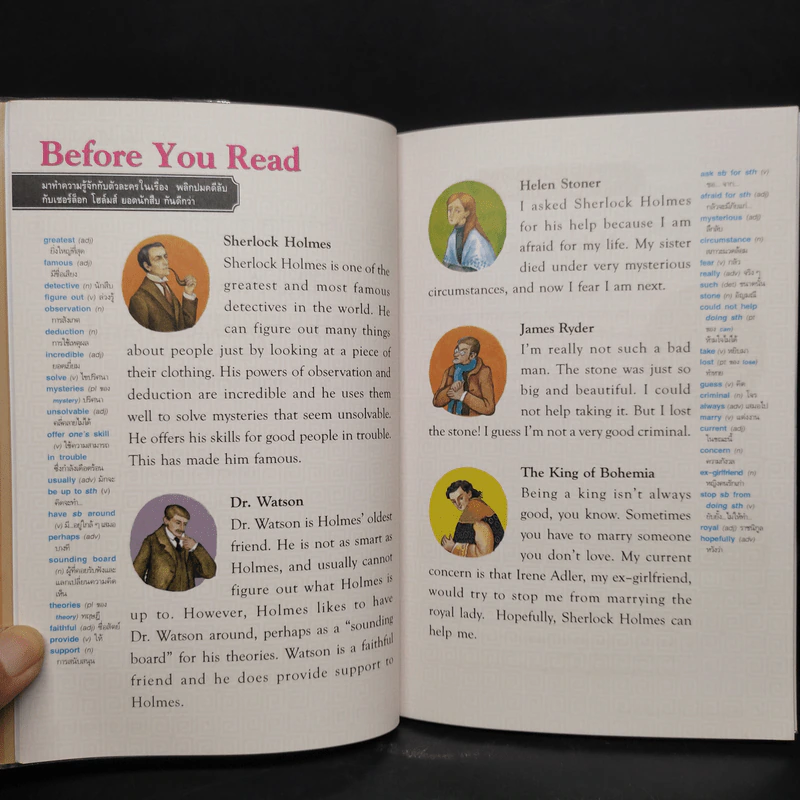 Before You Read
มาทำความรู้จักกับตัวละครในเรื่อง พลิกปมคดีลับ
กับเชอร์ล็อก โฮล์มส์ ยอดนักสืบ กันดีกว่า
greatest (adj)
ยิ่งใหญ่ที่สุด
famous (adj)
มีชื่อเสียง
detective (n) นักสืบ
figure out (v) ล่วงรู้
observation (n)
การสังเกต
deduction (n)
การใช้เหตุผล
incredible (adj)
ยอดเยี่ยม
solve (v) ไขปริศนา
mysteries (pl ของ
mystery) ปริศนา
unsolvable (adj)
คลี่คลายไม่ได้
offer one's skill
(v) ใช้ความสามารถ
in trouble
ซึ่งกำลังเดือดร้อน
usually (adv) มักจะ
be up to sth (v)
คิดจะทำ...
have sb around
(v) มี...อยู่ใกล้ ๆ เสมอ
perhaps (adv)
บางที
sounding board
(n) ผู้ที่คอยรับฟังและ
แลกเปลี่ยนความคิด
เห็น
theories (pl ของ
theory) ทฤษฎี
faithful (adj) ซื่อสัตย์
provide (v) ให้
support (n)
การสนับสนุน
Sherlock Holmes
Sherlock Holmes is one of the
greatest and most famous
detectives in the world. He
can figure out many things
about people just by looking at a piece of
their clothing. His powers of observation and
deduction are incredible and he uses them
well to solve mysteries that seem unsolvable.
He offers his skills for good people in trouble.
This has made him famous.
Dr. Watson
Dr. Watson is Holmes' oldest
friend. He is not as smart as
Holmes, and usually cannot
figure out what Holmes is
up to. However, Holmes likes to have
Dr. Watson around, perhaps as a “sounding
board” for his theories. Watson is a faithful
friend and he does provide support to
Holmes.
Helen Stoner
I asked Sherlock Holmes
for his help because I am
afraid for my life. My sister
died under very mysterious
circumstances, and now I fear I am next.
James Ryder
I'm really not such a bad
man. The stone was just so
big and beautiful. I could
not help taking it. But I lost
the stone! I guess I'm not a very good criminal.
The King of Bohemia
Being a king isn't always
good, you know. Sometimes
you have to marry someone
you don't love. My current
concern is that Irene Adler, my ex-girlfriend,
would try to stop me from marrying the
royal lady. Hopefully, Sherlock Holmes can
help me.
ask sb for sth (v)
ขอ... จาก...
afraid for sth (adj)
mysterious (adj)
ลึกลับ
circumstance (n)
fear (v) กลัว
really (adv) จริง ๆ
such (det) ขนาดนั้น
stone (n) อัญมณี
could not help
doing sth (pt
ของ can)
ห้ามใจไม่ได้
take (v) หยิบมา
lost (pt ของ lose)
ทำหาย
guess (v) คิด
criminal (n) โจร
always (adv) เสมอไป
marry (v) แต่งงาน
current (adj)
ในขณะนี้
concern (n)
ความกังวล
ex-girlfriend (n)
หญิงคนรักเก่า
stop sb from
doing sth (v)
royal (adj) ราชนิกูล
hopefully (adv)
หวังว่า